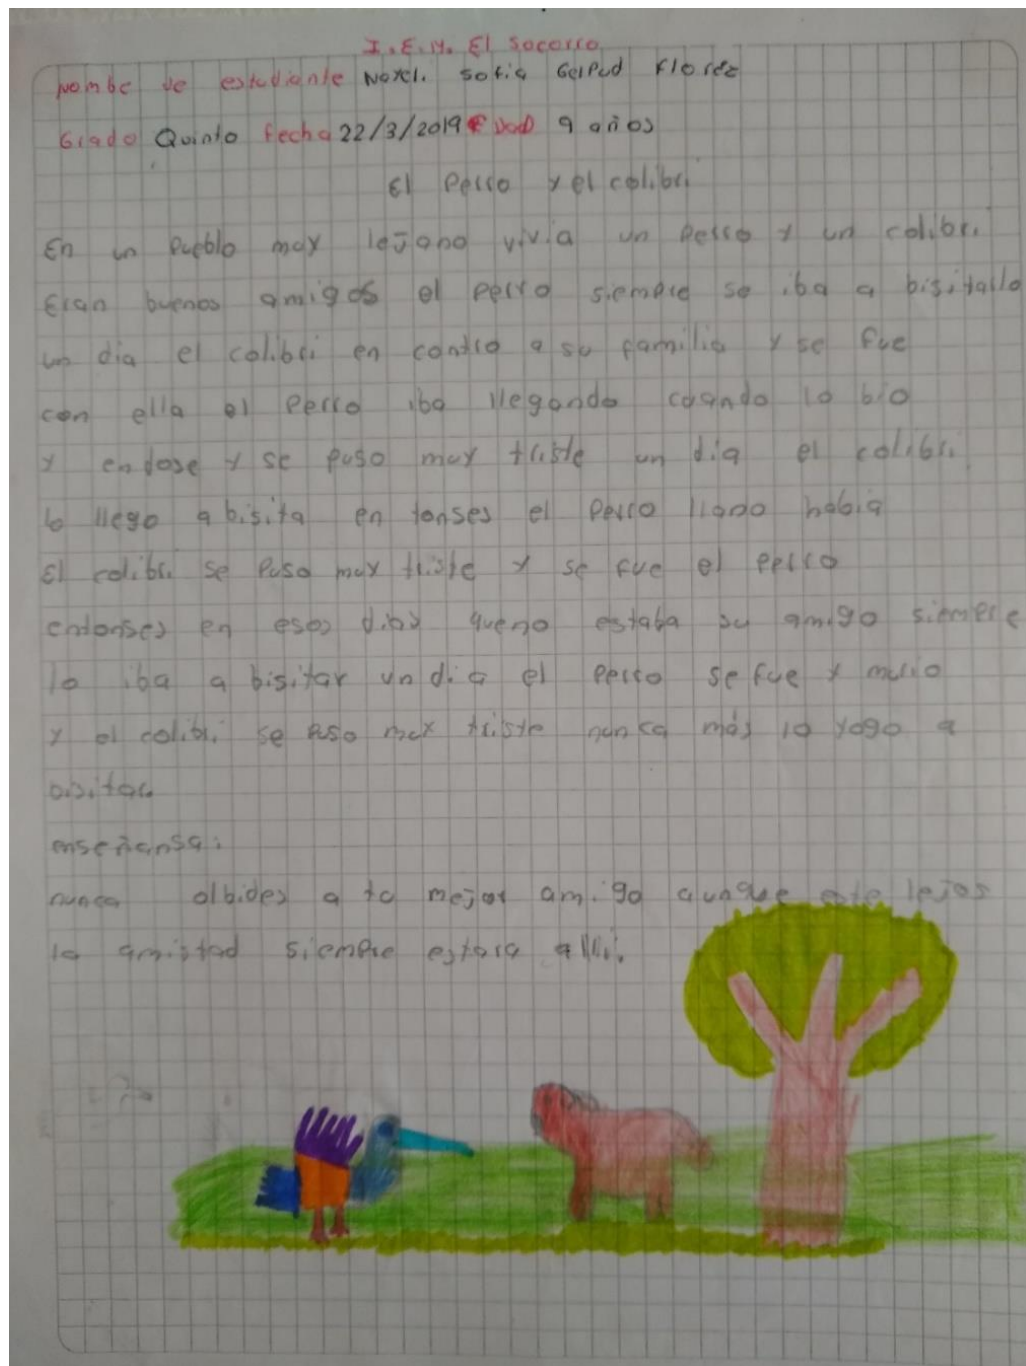 I.E.M. El Socorro
Nombe de estudiante Noxcl. Sofia Gelpud Florez
Grado Quinto fecha 22/3/2019 EDAD 9 años
El Perro y el colibri
En un Pueblo muy lejano vivia un Perro y un colibri
Eran buenos amigos el perro siempre se iba a bisitallo
un dia el colibri en contro a su familia y se fue
con ella el Perro iba llegando cuando lo bio
y endose y se puso muy triste un dia el colibri
lo llego abisita en tonses el Perro llano habia
El colibri se Puso muy triste y se fue el perro
entonses en esos dias queno estaba su amigo siempre
lo iba a bisitar un dia el Perro se fue y murio
y el colibri se Puso muy triste nunca más lo yogo a
bisitar
enseñansa:
nunca olbides a tu mejor amigo aunque este lejos
la amistad siempre estara alli.